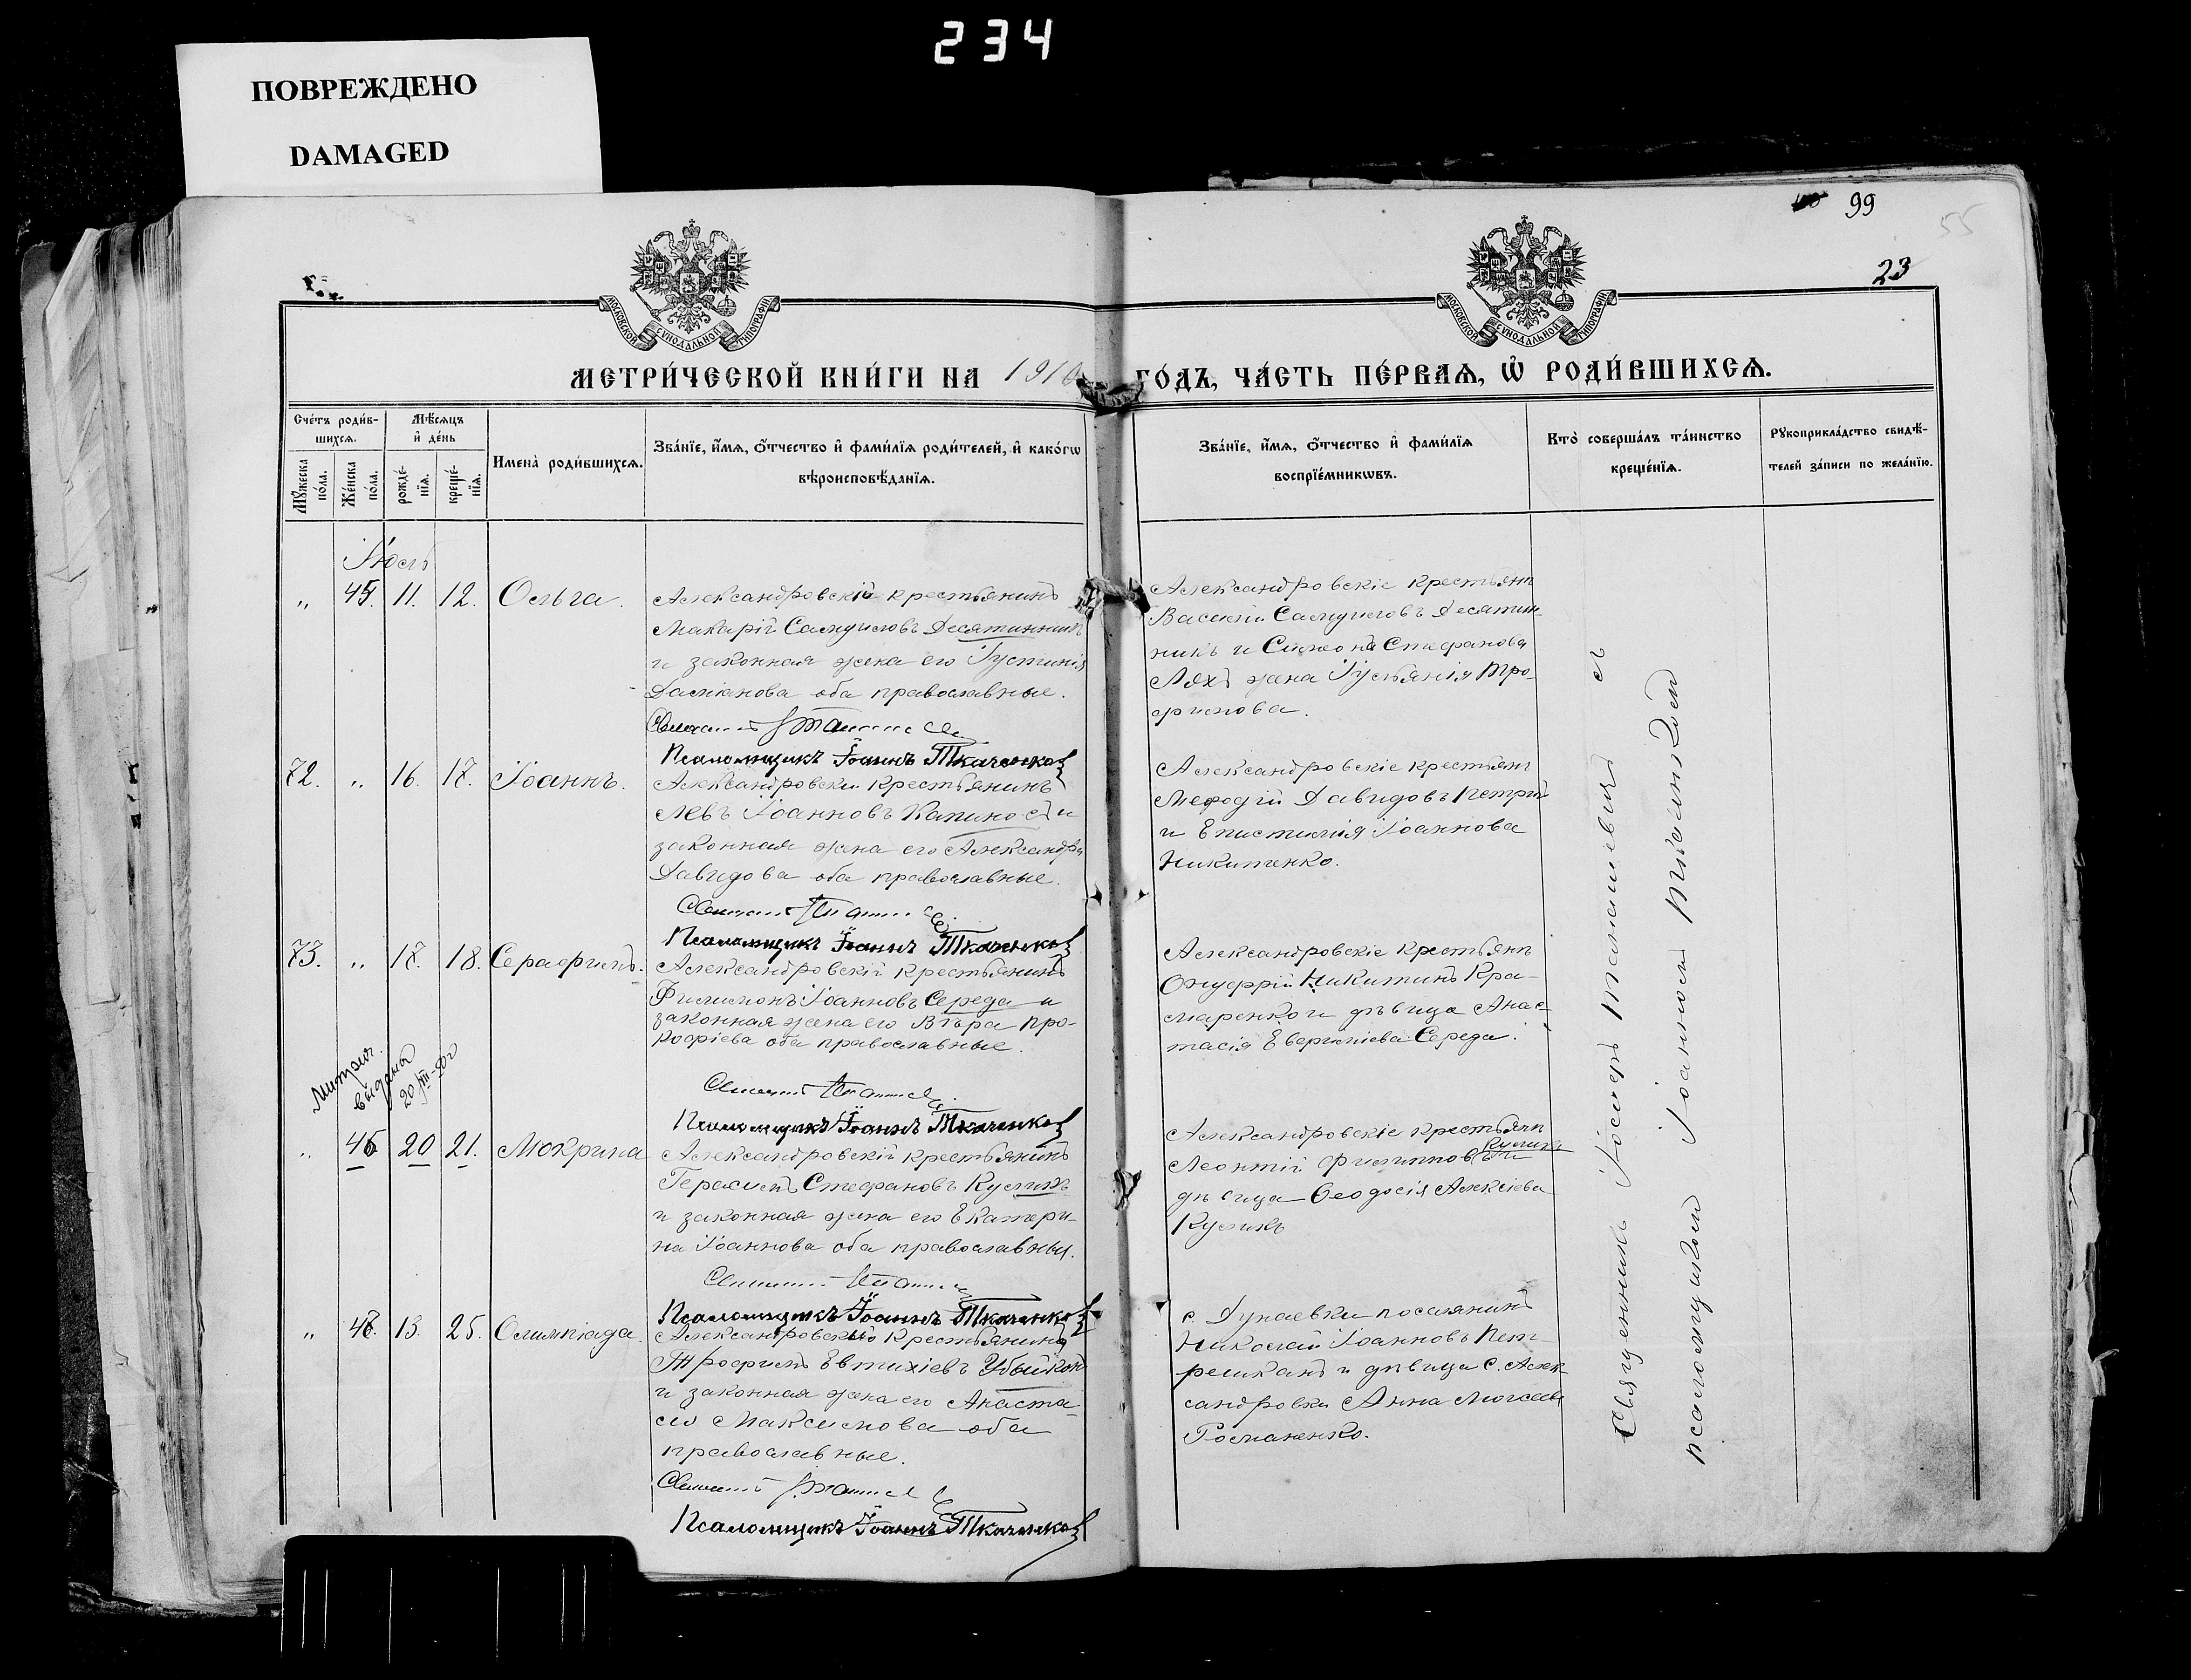 234
ПОВРЕЖДЕНО
DAMAGED
99
55
23
МОСКОВСКОЙ СѴНОДАЛЬНОЙ ТИПОГРАФІИ
МОСКОВСКОЙ СѴНОДАЛЬНОЙ ТИПОГРАФІИ
МЕТРИ́ЧЕСКОЙ КНИ́ГИ НА 1910 ГО́ДЪ, ЧА́СТЬ ПЕ́РВАѦ, Ѡ҆ РОДИ́ВШИХСѦ.
Счéтъ роди́в-
шихсѧ.
Мѣ́сѧцъ
и҆ дéнь
Мꙋ́жеска
по́ла.
Же́нска
по́ла.
рожде́-
нїѧ.
креще́-
нїѧ.
Имена̀ роди́вшихсѧ.
Зва́нїе, и҆́мѧ, ѻ҆́тчество и҆ фами́лїѧ роди́телей, и҆ како́гѡ
вѣроисповѣ́данїѧ.
Зва́нїе, и҆́мѧ, ѻ҆́тчество и҆ фами́лїѧ
воспрїе́мникѡвъ.
Кто̀ соверша́лъ та́инство
креще́нїѧ.
Рꙋкоприкла́дство свидѣ́-
телей за́писи по жела́нїю.
Іюль
„ 45. 11. 12. Ольга.
Александровскій крестьянинъ
Макарій Самуиловъ Десятинникъ
и законная жена его Іустинія
Даміанова оба православные.
Псаломщикъ Іоаннъ Ткаченко
Александровскіе крестьяне
Василій Самуиловъ Десятин-
никъ и Симеона Стефанова
Ляхъ жена Іуліанія Тро-
фимова.
72. „ 16. 17. Іоаннъ.
Александровскій крестьянинъ
Левъ Іоанновъ Капиносъ и
законная жена его Александра
Давидова оба православные.
Псаломщикъ Іоаннъ Ткаченко
Александровскіе крестьяне
Мефодій Давидовъ Петрій
и Епистимія Іоаннова
Никитенко.
73. „ 17. 18. Серафимъ.
Александровскій крестьянинъ
Филимонъ Іоанновъ Середа и
законная жена его Вѣра Про-
кофіева оба православные.
Псаломщикъ Іоаннъ Ткаченко
Александровскіе крестьяне
Онуфрій Никитинъ Кра-
маренко и дѣвица Анас-
тасія Евергиліева Середа.
выдана
20/III-20г
„ 46 20 21. Мокрина
Александровскій крестьянинъ
Герасимъ Стефановъ Куликъ
и законная жена его Екатери-
на Іоаннова оба православныя.
Псаломщикъ Іоаннъ Ткаченко
Александровскіе крестьяне
Куликъ
Леонтій Филипповъ и
дѣвица Ѳеодосія Алексіева
Куликъ
„ 48. 13. 25. Олимпіада.
Александровскаго крестьянина
Трофимъ Евтихіевъ Убыйконь
и законная жена его Анаста-
сія Максимова оба
православные.
Псаломщикъ Іоаннъ Ткаченко
с. Дунаевки поселянинъ
Николай Іоанновъ Пет-
реликанъ и дѣвица с. Алек-
сандровки Анна Моисеева
Романенко.
Священникъ Іосифъ Таталиевичъ съ
псаломщикомъ Іоанномъ Ткаченкомъ